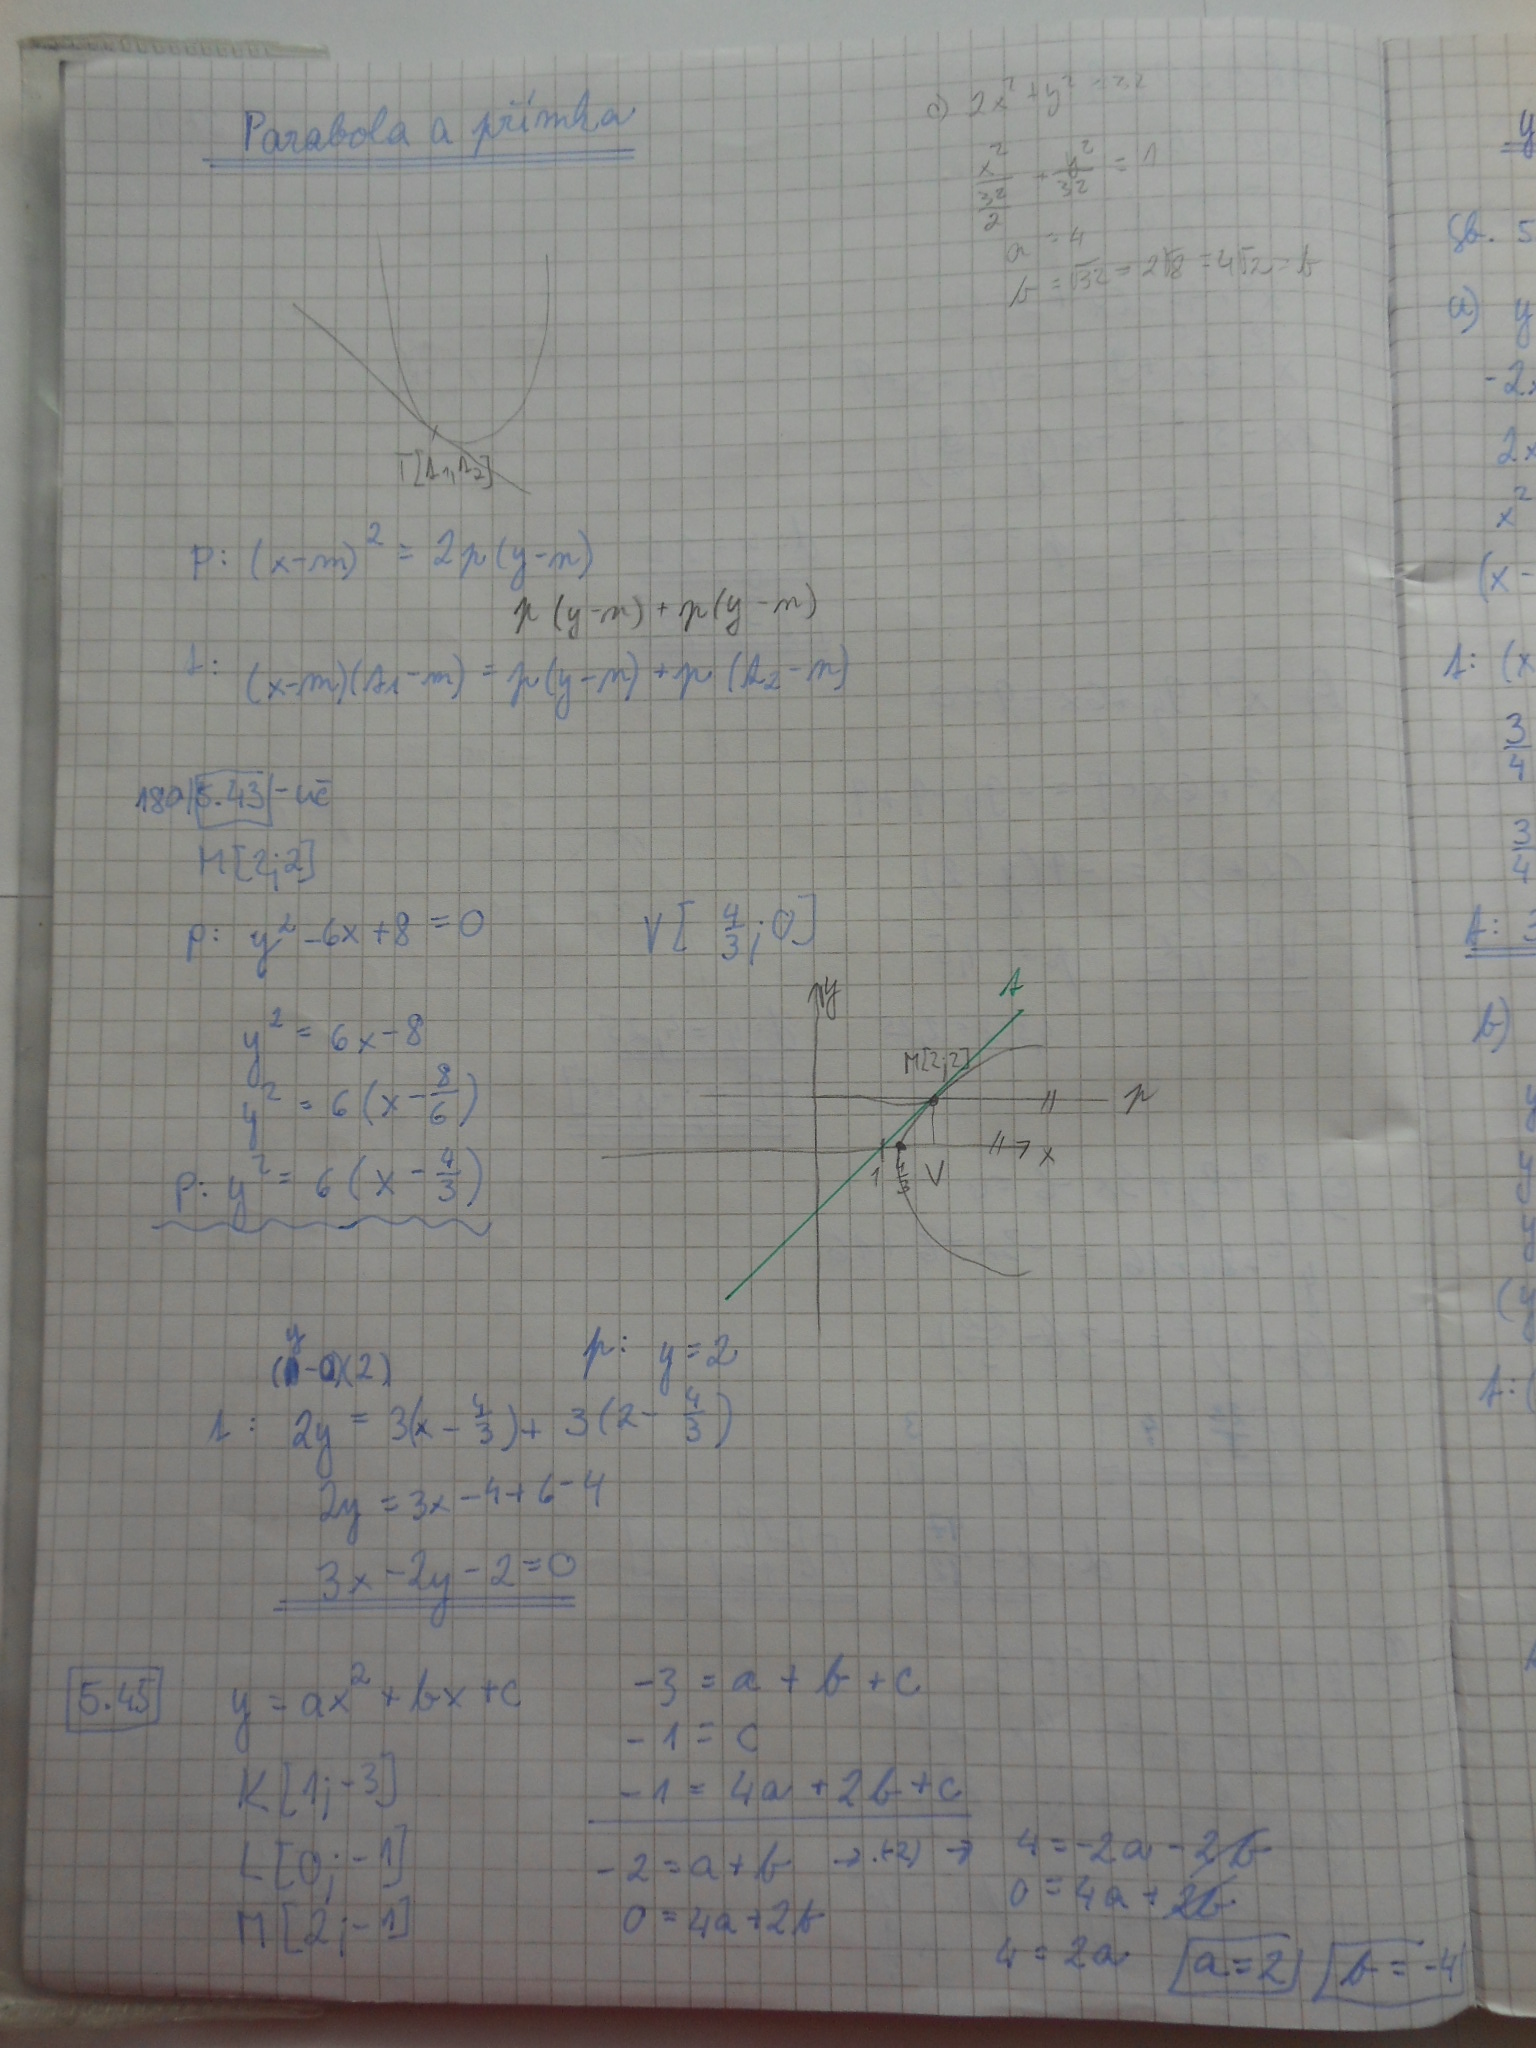 Parabola a přímka
c) 2x² + y² = 32
x²/(32/2) + y²/32 = 1
a = 4
b = √32 = 2√8 = 4√2 = b
T[t₁, t₂]
P: (x-m)² = 2p(y-n)
p(y-n) + p(y-n)
t: (x-m)(t₁-m) = p(y-n) + p(t₂-n)
180/5.43 - uč
M[2;2]
P: y² - 6x + 8 = 0
V[4/3; 0]
y² = 6x - 8
y² = 6(x - 8/6)
P: y² = 6(x - 4/3)
y
t
M[2;2]
p
x
1
4/3
V
(y-0)(2)
p: y = 2
t: 2y = 3(x - 4/3) + 3(2 - 4/3)
2y = 3x - 4 + 6 - 4
3x - 2y - 2 = 0
5.45
y = ax² + bx + c
K[1;-3]
L[0;-1]
M[2;-1]
-3 = a + b + c
-1 = c
-1 = 4a + 2b + c
-2 = a + b → ·(-2) →
0 = 4a + 2b
4 = -2a - 2b
0 = 4a + 2b
4 = 2a
a = 2
b = -4
8b. 5
a) y
-2x
2x
x²
(x-
t: (x
3/4
3/4
t: 3
b)
t: (